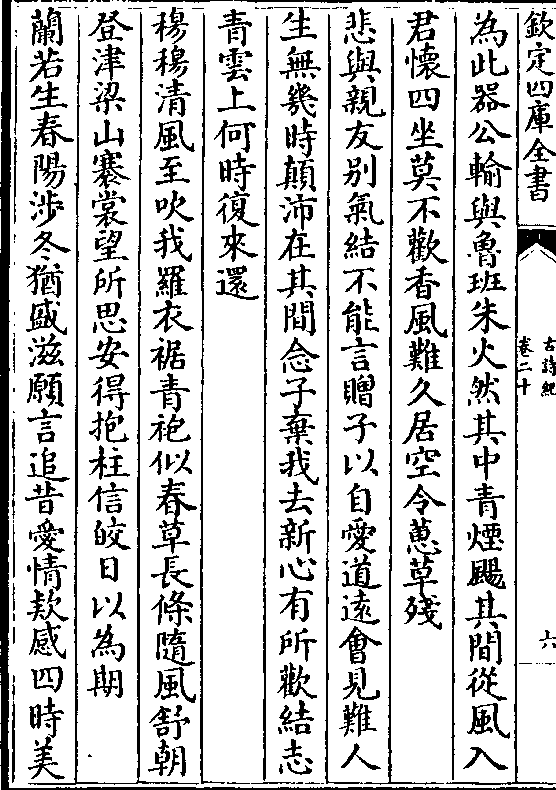 欽定四庫全書
古詩紀
卷二十
六
為此器公輸與魯班朱火然其中青煙颺其間從風入
君懷四坐莫不歡香風難久居空令蕙草殘
悲與親友别氣結不能言贈子以自愛道遠會見難人
生無幾時顛沛在其間念子棄我去新心有所歡結志
青雲上何時復來還
穆穆清風至吹我羅衣裾青袍似春草長條隨風舒朝
登津梁山褰裳望所思安得抱柱信皎日以為期
蘭若生春陽涉冬猶盛滋願言追昔愛情欵感四時美